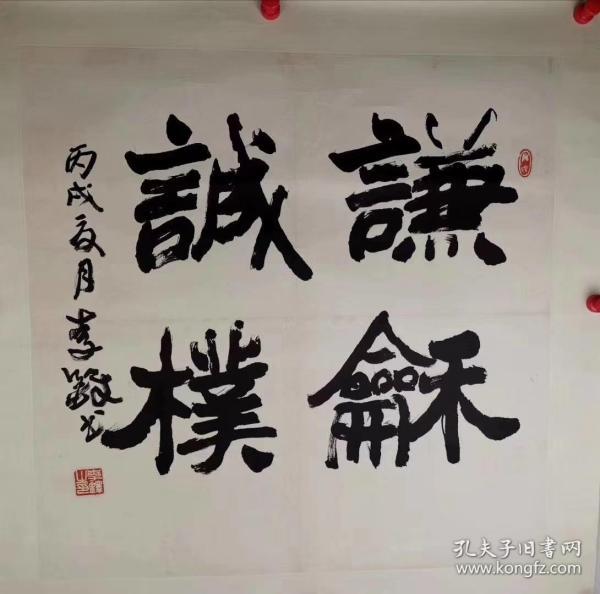 謙龢
誠樸
丙戌夏月李鐸书
孔夫子旧书网
www.kongfz.com